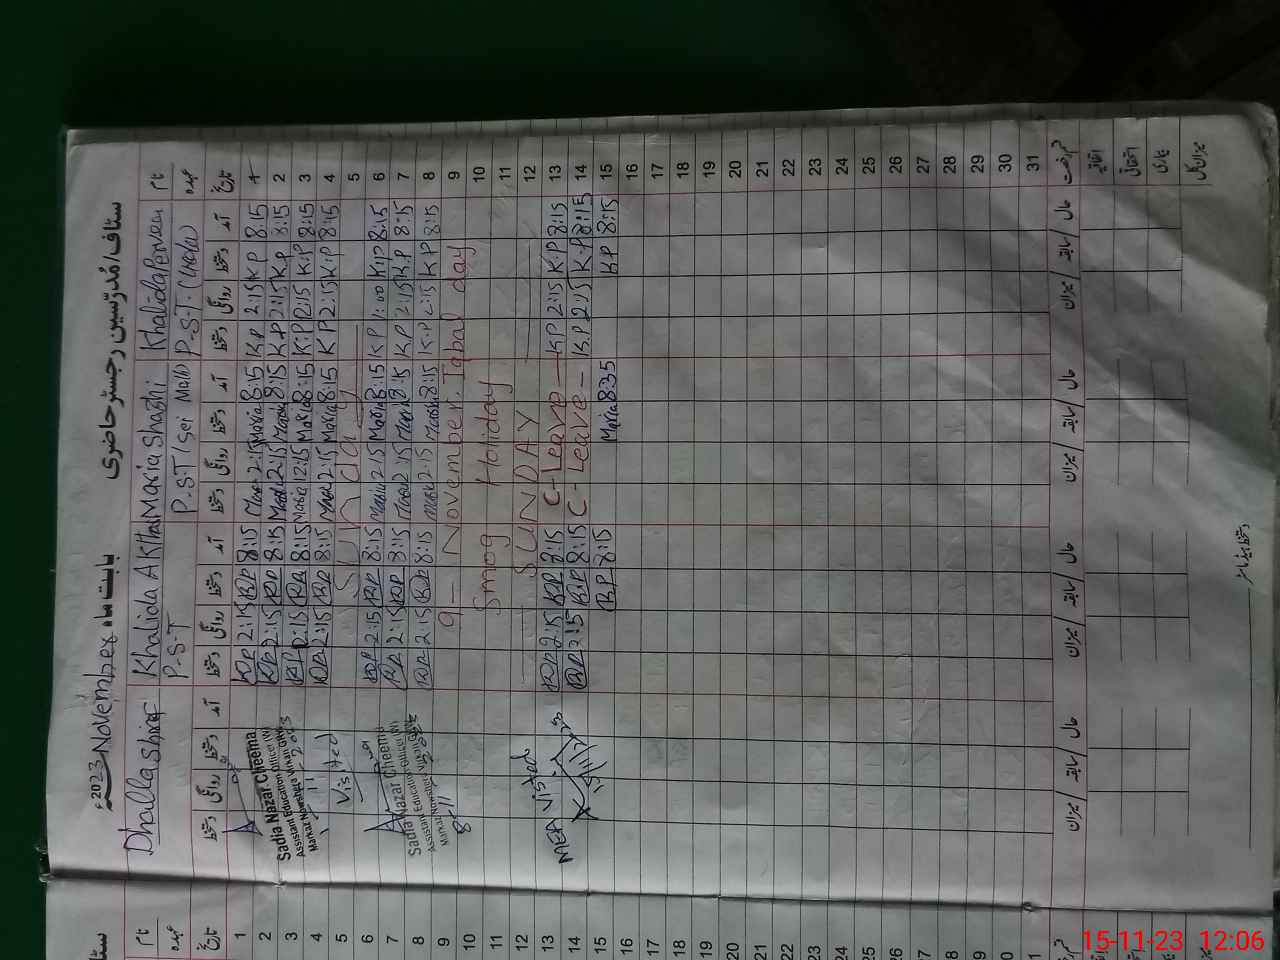 ستاف/مُدرّسین رجسٹر حاضری بابت ماہ November 2023ء
نام Khalida Parveen Maria Shashi Khalida Akhtar Dhalla Shiraf
عہدہ P.S.T. (Head) P.S.T/Sei P.S.T
تاریخ آمد دستخط روانگی دستخط آمد دستخط روانگی دستخط آمد دستخط روانگی دستخط آمد دستخط روانگی دستخط
1 8:15 K.P 2:15 K.P 8:15 Maria 2:15 Maria 8:15 KP 2:15 KP
2 8:15 K.P 2:15 K.P 8:15 Maria 2:15 Maria 8:15 KP 2:15 KP
3 8:15 K.P 2:15 K.P 8:15 Maria 12:15 Maria 8:15 KP 2:15 KP
4 8:15 K.P 2:15 K.P 8:15 Maria 2:15 Maria 8:15 KP 2:15 KP
5 Sunday
6 8:15 K.P 1:00 K.P 8:15 Maria 2:15 Maria 8:15 KP 2:15 KP
7 8:15 K.P 2:15 K.P 8:15 Maria 2:15 Maria 8:15 KP 2:15 KP
8 8:15 K.P 2:15 K.P 8:15 Maria 2:15 Maria 8:15 KP 2:15 KP
9 9 - November. Iqbal day
10 Smog Holiday
11
12 SUNDAY
13 8:15 K.P 2:15 K.P C-Leave 8:15 KP 2:15 KP
14 8:15 K.P 2:15 K.P C-Leave 8:15 KP 2:15 KP
15 8:15 K.P 8:35 Maria 8:15 KP
16
17
18
19
20
21
22
23
24
25
26
27
28
29
30
31
Sadia Nazar Cheema
Assistant Education Officer (W)
Visited
Sadia Nazar Cheema
Assistant Education Officer (W)
8/11
MEA Visited
قسم رخصت حال سابقہ میزان حال سابقہ میزان حال سابقہ میزان
اتفاقیہ
استحقاقی
بیماری
میزان کل
ستاف
نام
عہدہ
تاریخ
1
2
3
4
5
6
7
8
9
10
11
12
13
14
15
16
17
18
19
20
21
22
23
24
25
26
15-11-23 12:06